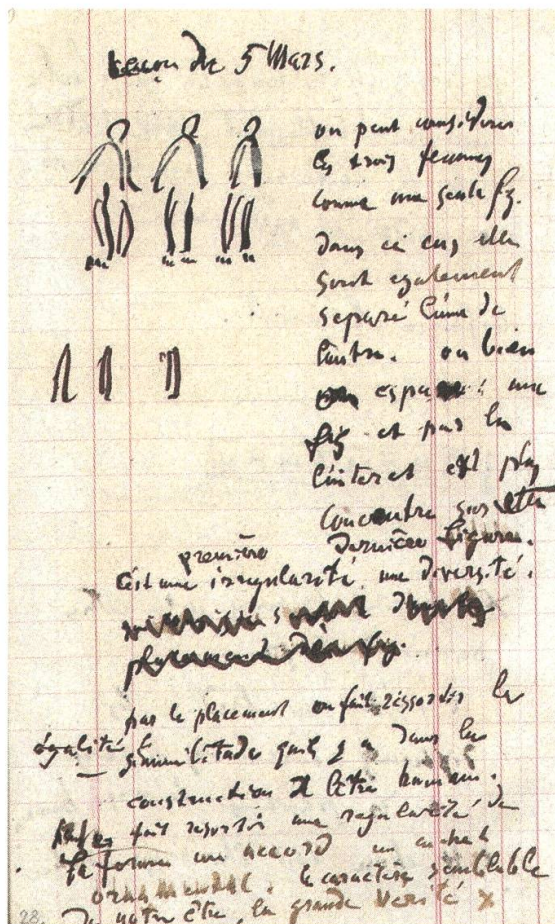 Leçon du 5 Mars.
on peut considérer
les trois femmes
comme une seule fig.
Dans ce cas elle
sont egalement
separé l'une de
l'autre. ou bien
on espace une
fig et par la
l'interet est plus
concentre sur
dernière figure.
première
c'est une irregularité, une diversité.
placement fig.
par le placement on fait ressortir la
égalité
similitude qu'il y a dans la
construction de l'être humain.
fait resortir une regularité de
forme un accord un
ornemental. le caractère semblable
De notre être, la grande verité x
28.